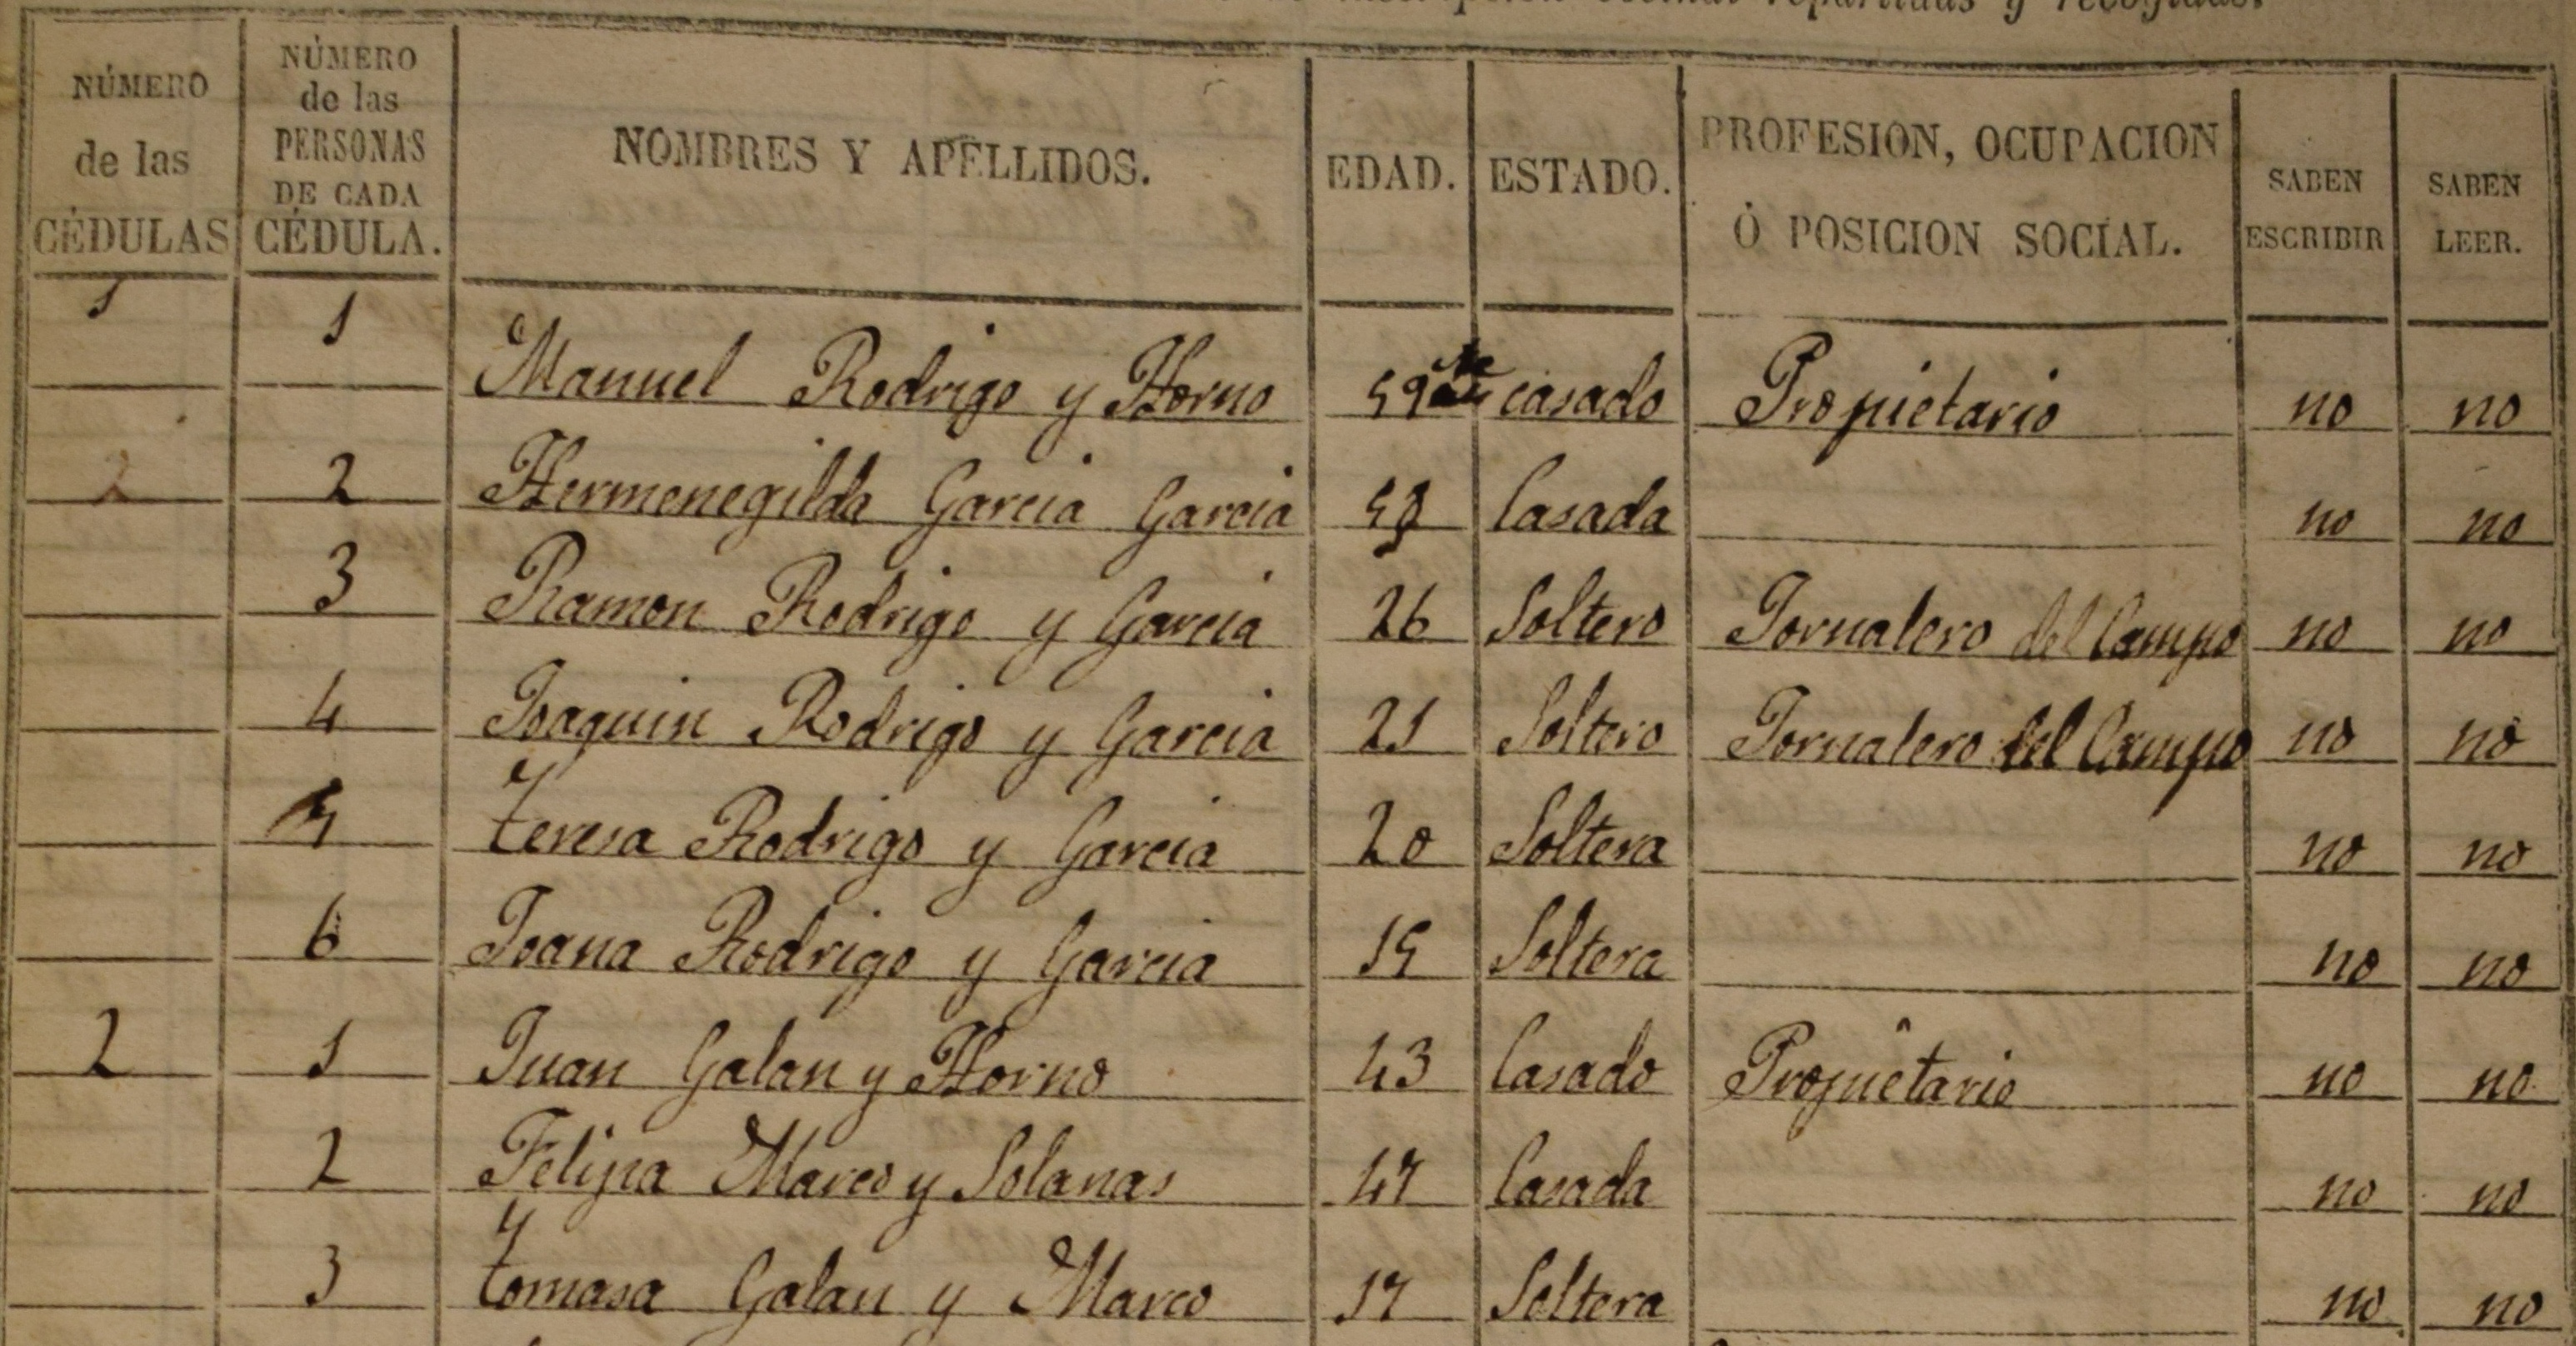 inscripcion vecinal repartidas y recogidas.
NÚMERO de las CÉDULAS NÚMERO de las PERSONAS DE CADA CÉDULA. NOMBRES Y APELLIDOS. EDAD. ESTADO. PROFESION, OCUPACION Ó POSICION SOCIAL. SABEN ESCRIBIR SABEN LEER.
1 1 Manuel Rodrigo y Horno 59 casado Propietario no no
2 2 Hermenegilda Garcia Garcia Casada no no
3 Ramon Rodrigo y Garcia 26 Soltero Jornalero del Campo no no
4 Joaquin Rodrigo y Garcia 21 Soltero Jornalero del Campo no no
5 teresa Rodrigo y Garcia 20 Soltera no no
6 Joana Rodrigo y Garcia 15 Soltera no no
2 1 Juan Galan y Horno 43 Casado Propietario no no
2 Felipa Marco y Solanas 47 Casada no no
3 tomasa Galan y Marco 17 Soltera no no